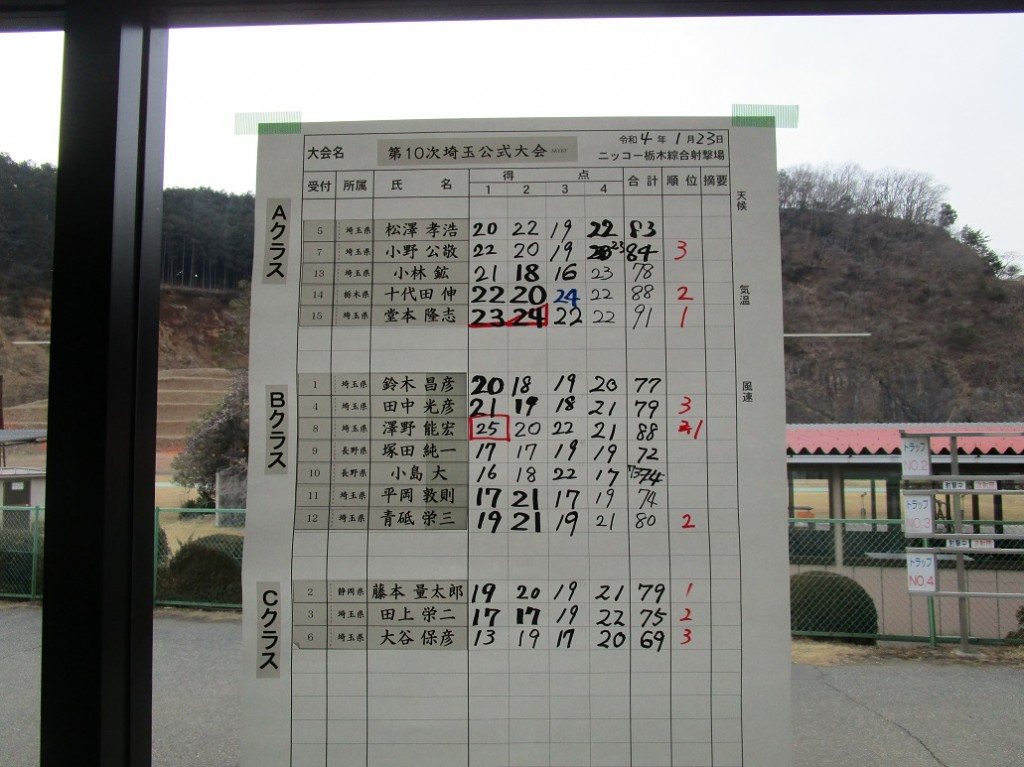 令和 4 年 1 月 23 日
大会名 第10次埼玉公式大会
ニッコー栃木綜合射撃場
受付 所属 氏名 得点 合計 順位 摘要
1 2 3 4
天候
気温
風速
Aクラス
5 埼玉県 松澤 孝浩 20 22 19 22 83
7 埼玉県 小野 公敬 22 20 19 23 84 3
13 埼玉県 小林 鉱 21 18 16 23 78
14 栃木県 十代田 伸 22 20 24 22 88 2
15 埼玉県 堂本 隆志 23 24 22 22 91 1
Bクラス
1 埼玉県 鈴木 昌彦 20 18 19 20 77
4 埼玉県 田中 光彦 21 19 18 21 79 3
8 埼玉県 澤野 能宏 25 20 22 21 88 1
9 長野県 塚田 純一 17 17 19 19 72
10 長野県 小島 大 16 18 22 17 74
11 埼玉県 平岡 敦則 17 21 17 19 74
12 埼玉県 青砥 栄三 19 21 19 21 80 2
Cクラス
2 静岡県 藤本 量太郎 19 20 19 21 79 1
3 埼玉県 田上 栄二 17 17 19 22 75 2
6 埼玉県 大谷 保彦 13 19 17 20 69 3
トラップ
NO.2
トラップ
NO.3
トラップ
NO.4